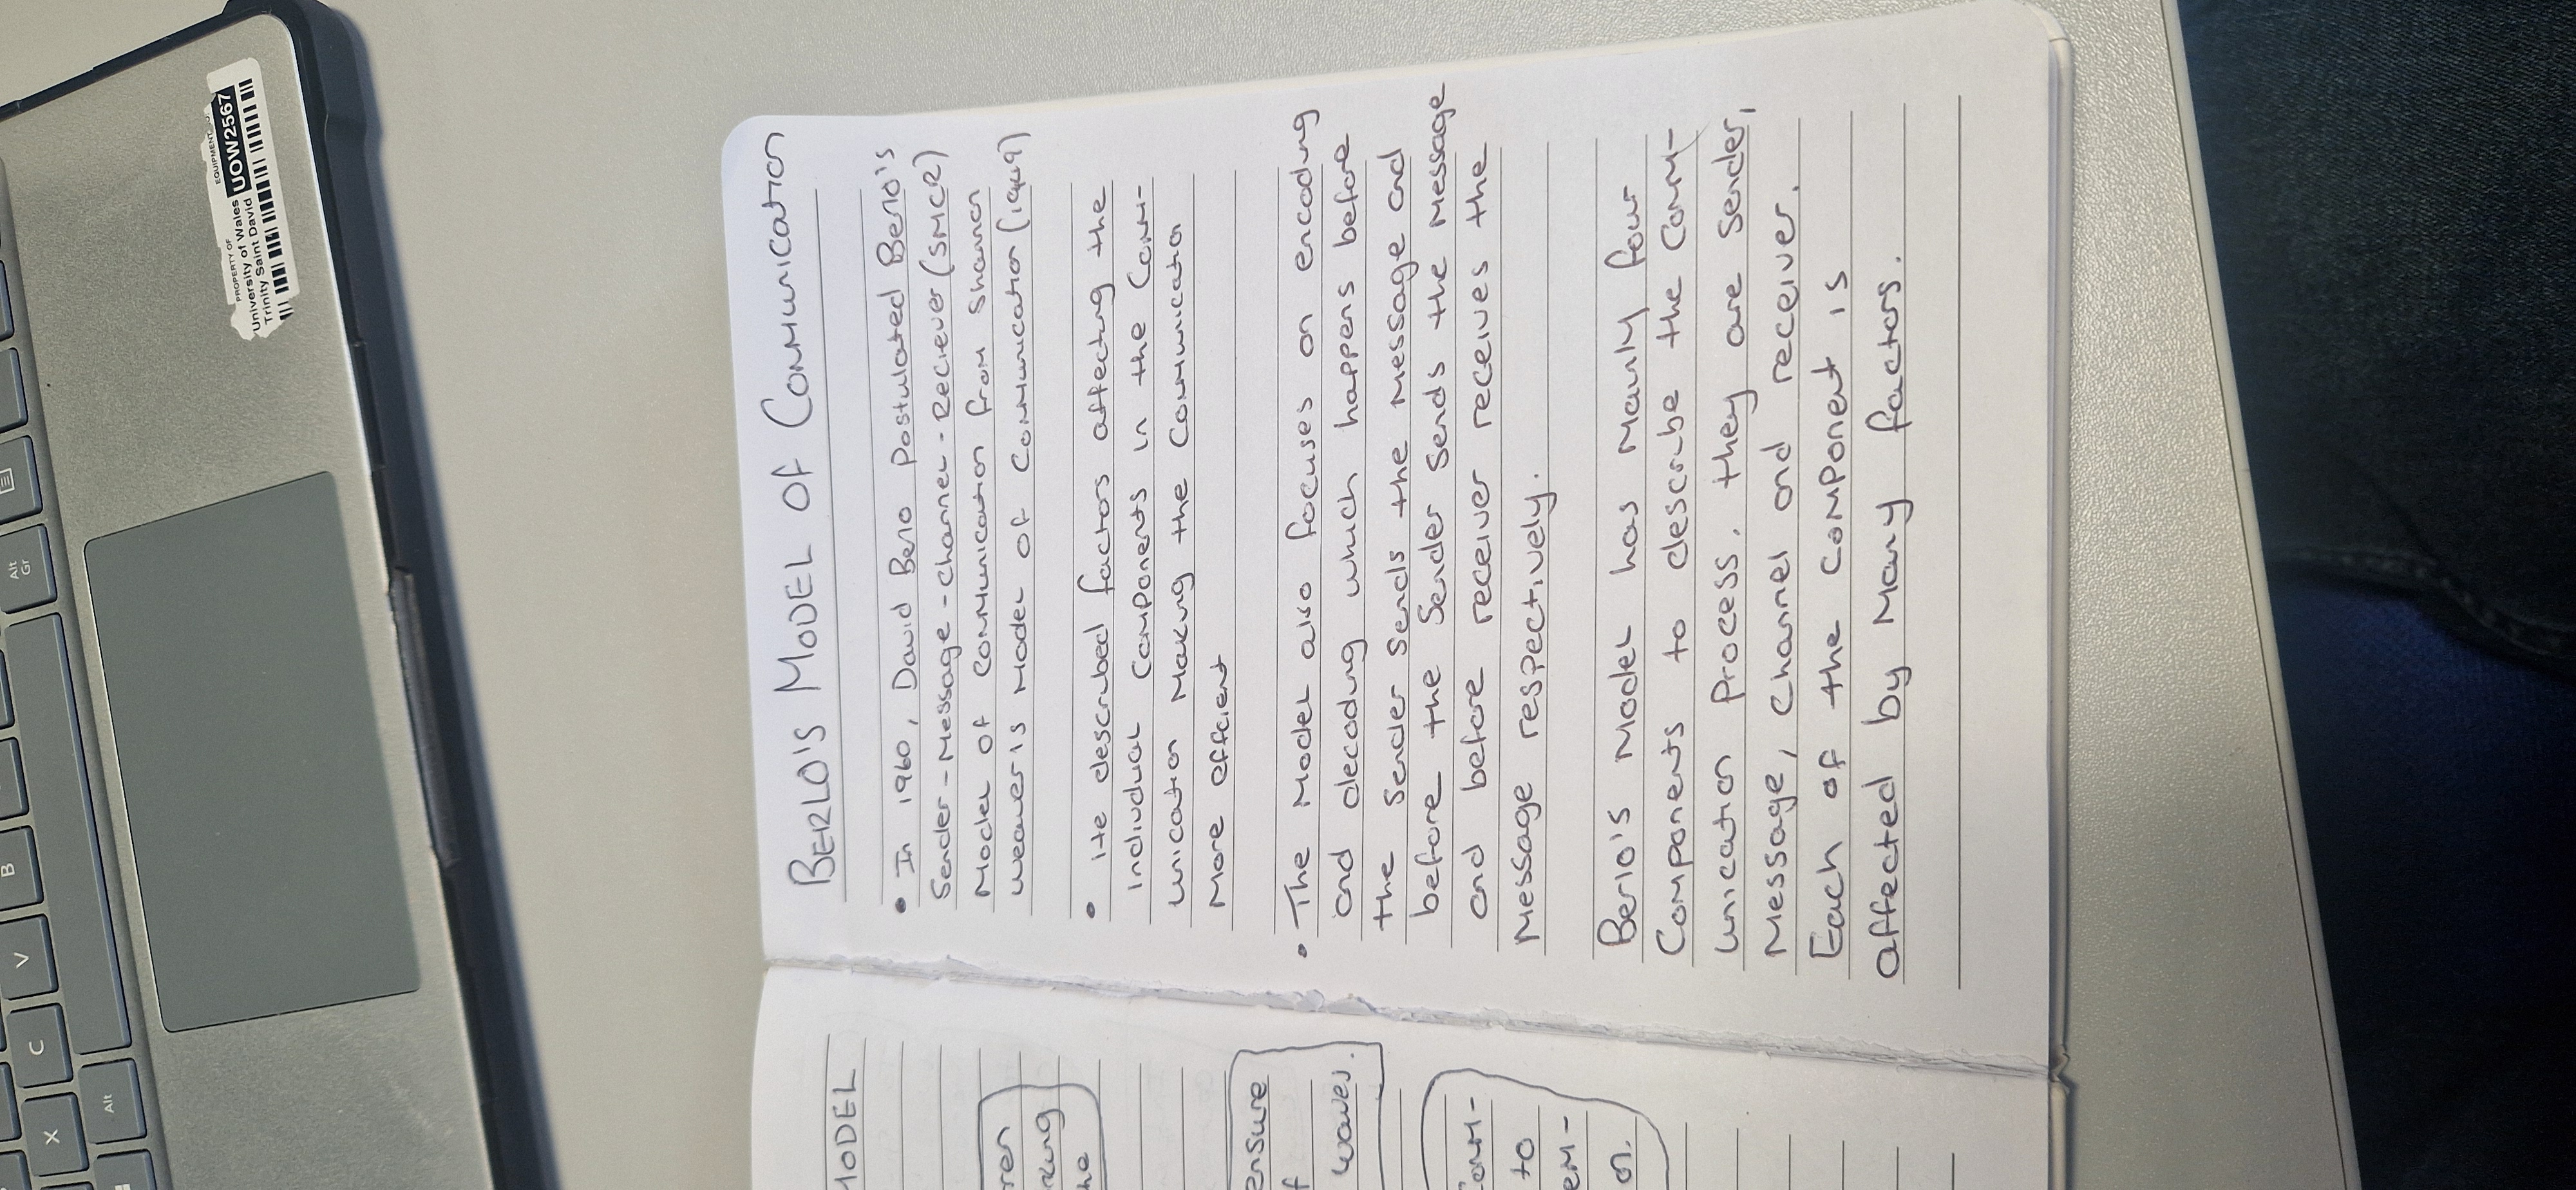 BERLO'S MODEL OF COMMUNICATION
• In 1960, David Berlo Postulated Berlo's
Sender - Message - Channel - Reciever (SMCR)
Model of Communication from Shannon
Weaver's Model of Communication (1949)
• He described factors affecting the
individual Components in the Comm-
unication Making the Communication
More efficient
• The Model also focuses on encoding
and decoding which happens before
the Sender Sends the Message and
before the Sender Sends the Message
and before receiver receives the
Message respectively.
Berlo's Model has Mainly four
Components to describe the Comm-
unication Process. they are Sender,
Message, Channel and receiver.
Each of the component is
affected by Many factors.
MODEL
the
ensure
waves.
to
PROPERTY OF
University of Wales
Trinity Saint David
UOW2567
Alt
Gr
B
V
C
X
Alt